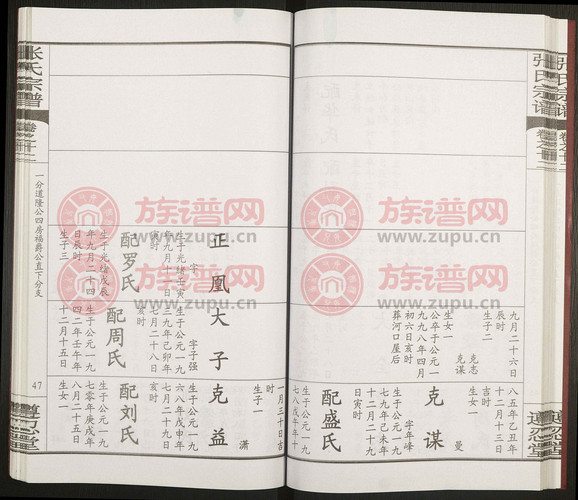 张氏宗谱
卷之十二
遵忍堂
九月二十六日
辰时
生子二
克志
克谋
生女一
公卒于公元一
九九八年四月
初六日亥时
葬河口屋后
八五年乙丑年
十二月十三日
吉时
生女一
曼
克谋
字年峰
生于公元一九
七九年己未年
十二月二十九
日寅时
配盛氏
生于公元一九
七八戊午年十
一月三十日吉
时
生子一
潇
正凰
字
生于光绪壬寅
年九月十三日
寅时
配罗氏
生于光绪戊辰
年九月二十四
日辰时
生子三
大子
字子强
生于公元一九
三九年己卯年
七月二十八日
亥时
配周氏
生于公元一九
四二年壬午年
十二月十五日
克益
生于公元一九
六八年戊申年
七月二十九
亥时
配刘氏
生于公元一九
七零年庚戌年
八月二十五日
生女一
张氏宗谱
卷之十二
一分道隆公四房福爵公直下分支
47
遵忍堂
族谱网
www.zupu.cn
族谱网
www.zupu.cn
族谱网
www.zupu.cn
族谱网
www.zupu.cn